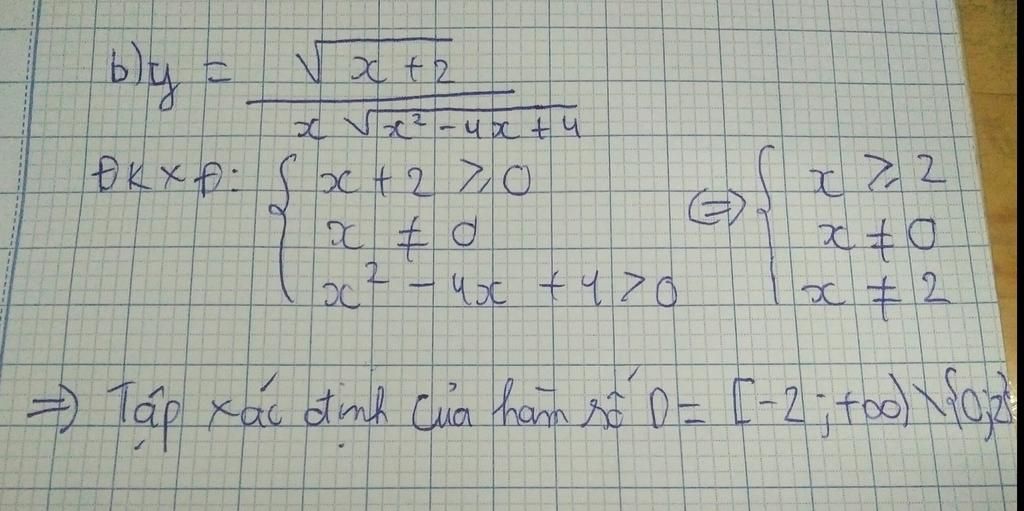 b) y = √(x + 2) / (x √(x² - 4x + 4))
ĐKXĐ: { x + 2 ⩾ 0 ⇔ { x ⩾ 2
x ≠ 0 x ≠ 0
x² - 4x + 4 > 0 x ≠ 2
⇒ Tập xác định của hàm số D = [-2 ; +∞) \ {0;2}